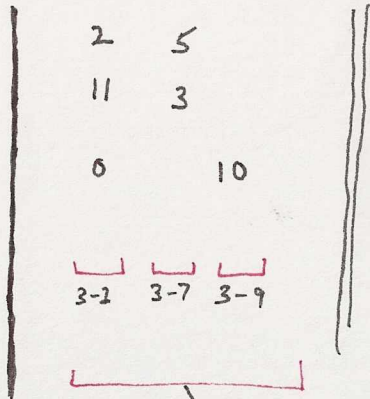 2 5
11 3
0 10
3-2 3-7 3-9